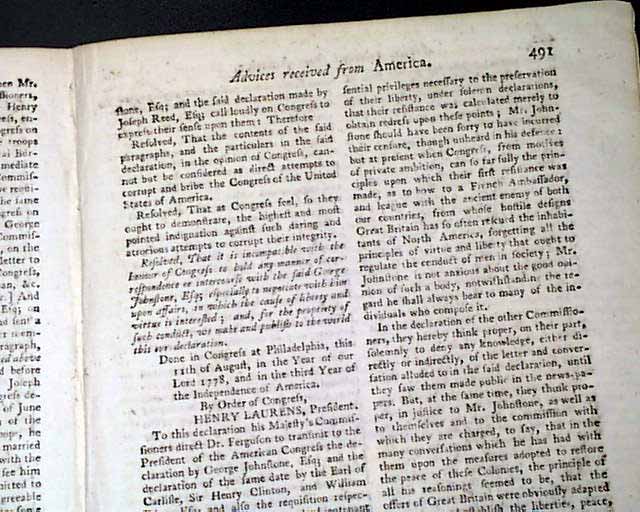 Advices received from America. 491
en Mr.
ssioners,
Henry
ess, en-
gress on
troops
mediate
Commis-
the same
gress on
George
Commis-
, on the
letter to
Congress,
an, &c.
] And
Esq; on
paragraph,
d before
Joseph
of June
married
with the
see him
mitted to
agreeable
stone, Esq; and the said declaration made by
Joseph Reed, Esq; call loudly on Congress to
express their sense upon them: Therefore
Resolved, That the contents of the said
paragraphs, and the particulars in the said
declaration, in the opinion of Congress, can-
not but be considered as direct attempts to
corrupt and bribe the Congress of the United
States of America.
Resolved, That as Congress feel, so they
ought to demonstrate, the highest and most
pointed indignation against such daring and
atrocious attempts to corrupt their integrity.
Resolved, That it is incompatible with the
honour of Congress to hold any manner of cor-
respondence or intercourse with the said George
Johnstone, Esq; especially to negotiate with him
upon affairs, in which the cause of liberty and
virtue is interested; and, for the propriety of
such conduct, we make and publish to the world
this our declaration.
Done in Congress at Philadelphia, this
11th of August, in the Year of our
Lord 1778, and in the third Year of
the Independence of America.
By Order of Congress,
HENRY LAURENS, President.
To this declaration his Majesty's Commis-
sioners direct Dr. Ferguson to transmit to the
President of the American Congress the de-
claration by George Johnstone, Esq; and the
declaration of the same date by the Earl of
Carlisle, Sir Henry Clinton, and William
Esq; and also the requisition respec-
sential privileges necessary to the preservation
of their liberty, under solemn declarations,
that their resistance was calculated merely to
obtain redress upon these points; Mr. John-
stone should have been sorry to have incurred
their censure, though unheard in his defence:
but at present when Congress, from motives
of private ambition, can so far sully the prin-
ciples upon which their first resistance was
made, as to bow to a French Ambassador,
and league with the ancient enemy of both
our countries, from whose hostile designs
Great Britain has so often rescued the inhabi-
tants of North America, forgetting all the
principles of virtue and liberty that ought to
regulate the conduct of men in society; Mr.
Johnstone is not anxious about the good opi-
nion of such a body, notwithstanding the re-
gard he shall always bear to many of the in-
dividuals who compose it.
In the declaration of the other Commissio-
ners, they hereby think proper, on their part,
solemnly to deny any knowledge, either di-
rectly or indirectly, of the letter and conver-
sation alluded to in the said declaration, until
they saw them made public in the news-pa-
pers. But, at the same time, they think pro-
per, in justice to Mr. Johnstone, as well as
to themselves and to the commission with
which they are charged, to say, that in the
many conversations which he has had with
them upon the measures adopted to restore
the peace of these Colonies, the principle of
all his reasonings seemed to be, that the
offers of Great Britain were obviously adapted
establish the liberties, peace,